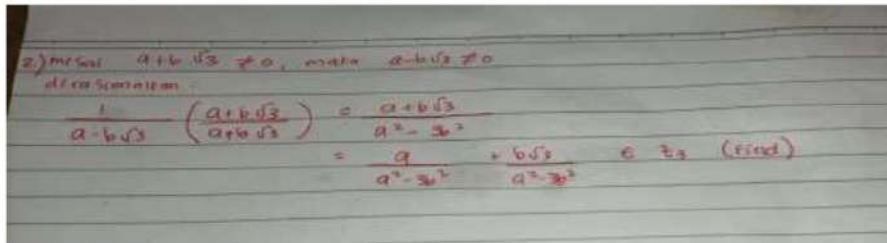 2) misal a+b √3 ≠ 0, maka a-b√3 ≠ 0
dirasionalkan
1/(a-b√3) ((a+b√3)/(a+b√3)) = (a+b√3)/(a² - 3b²)
= a/(a²-3b²) + b√3/(a²-3b²) ∈